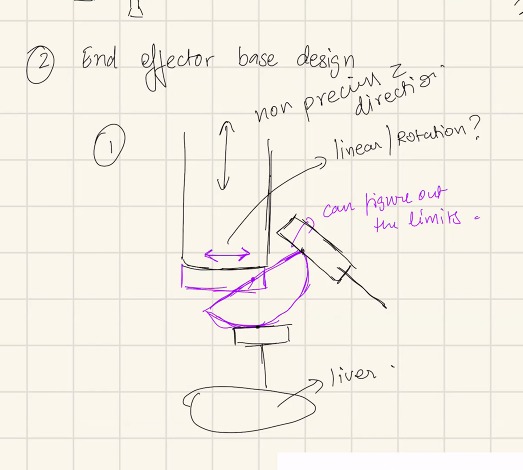 ② End effector base design
non precise Z
direction.
①
linear/Rotation?
can figure out
the limits.
liver.